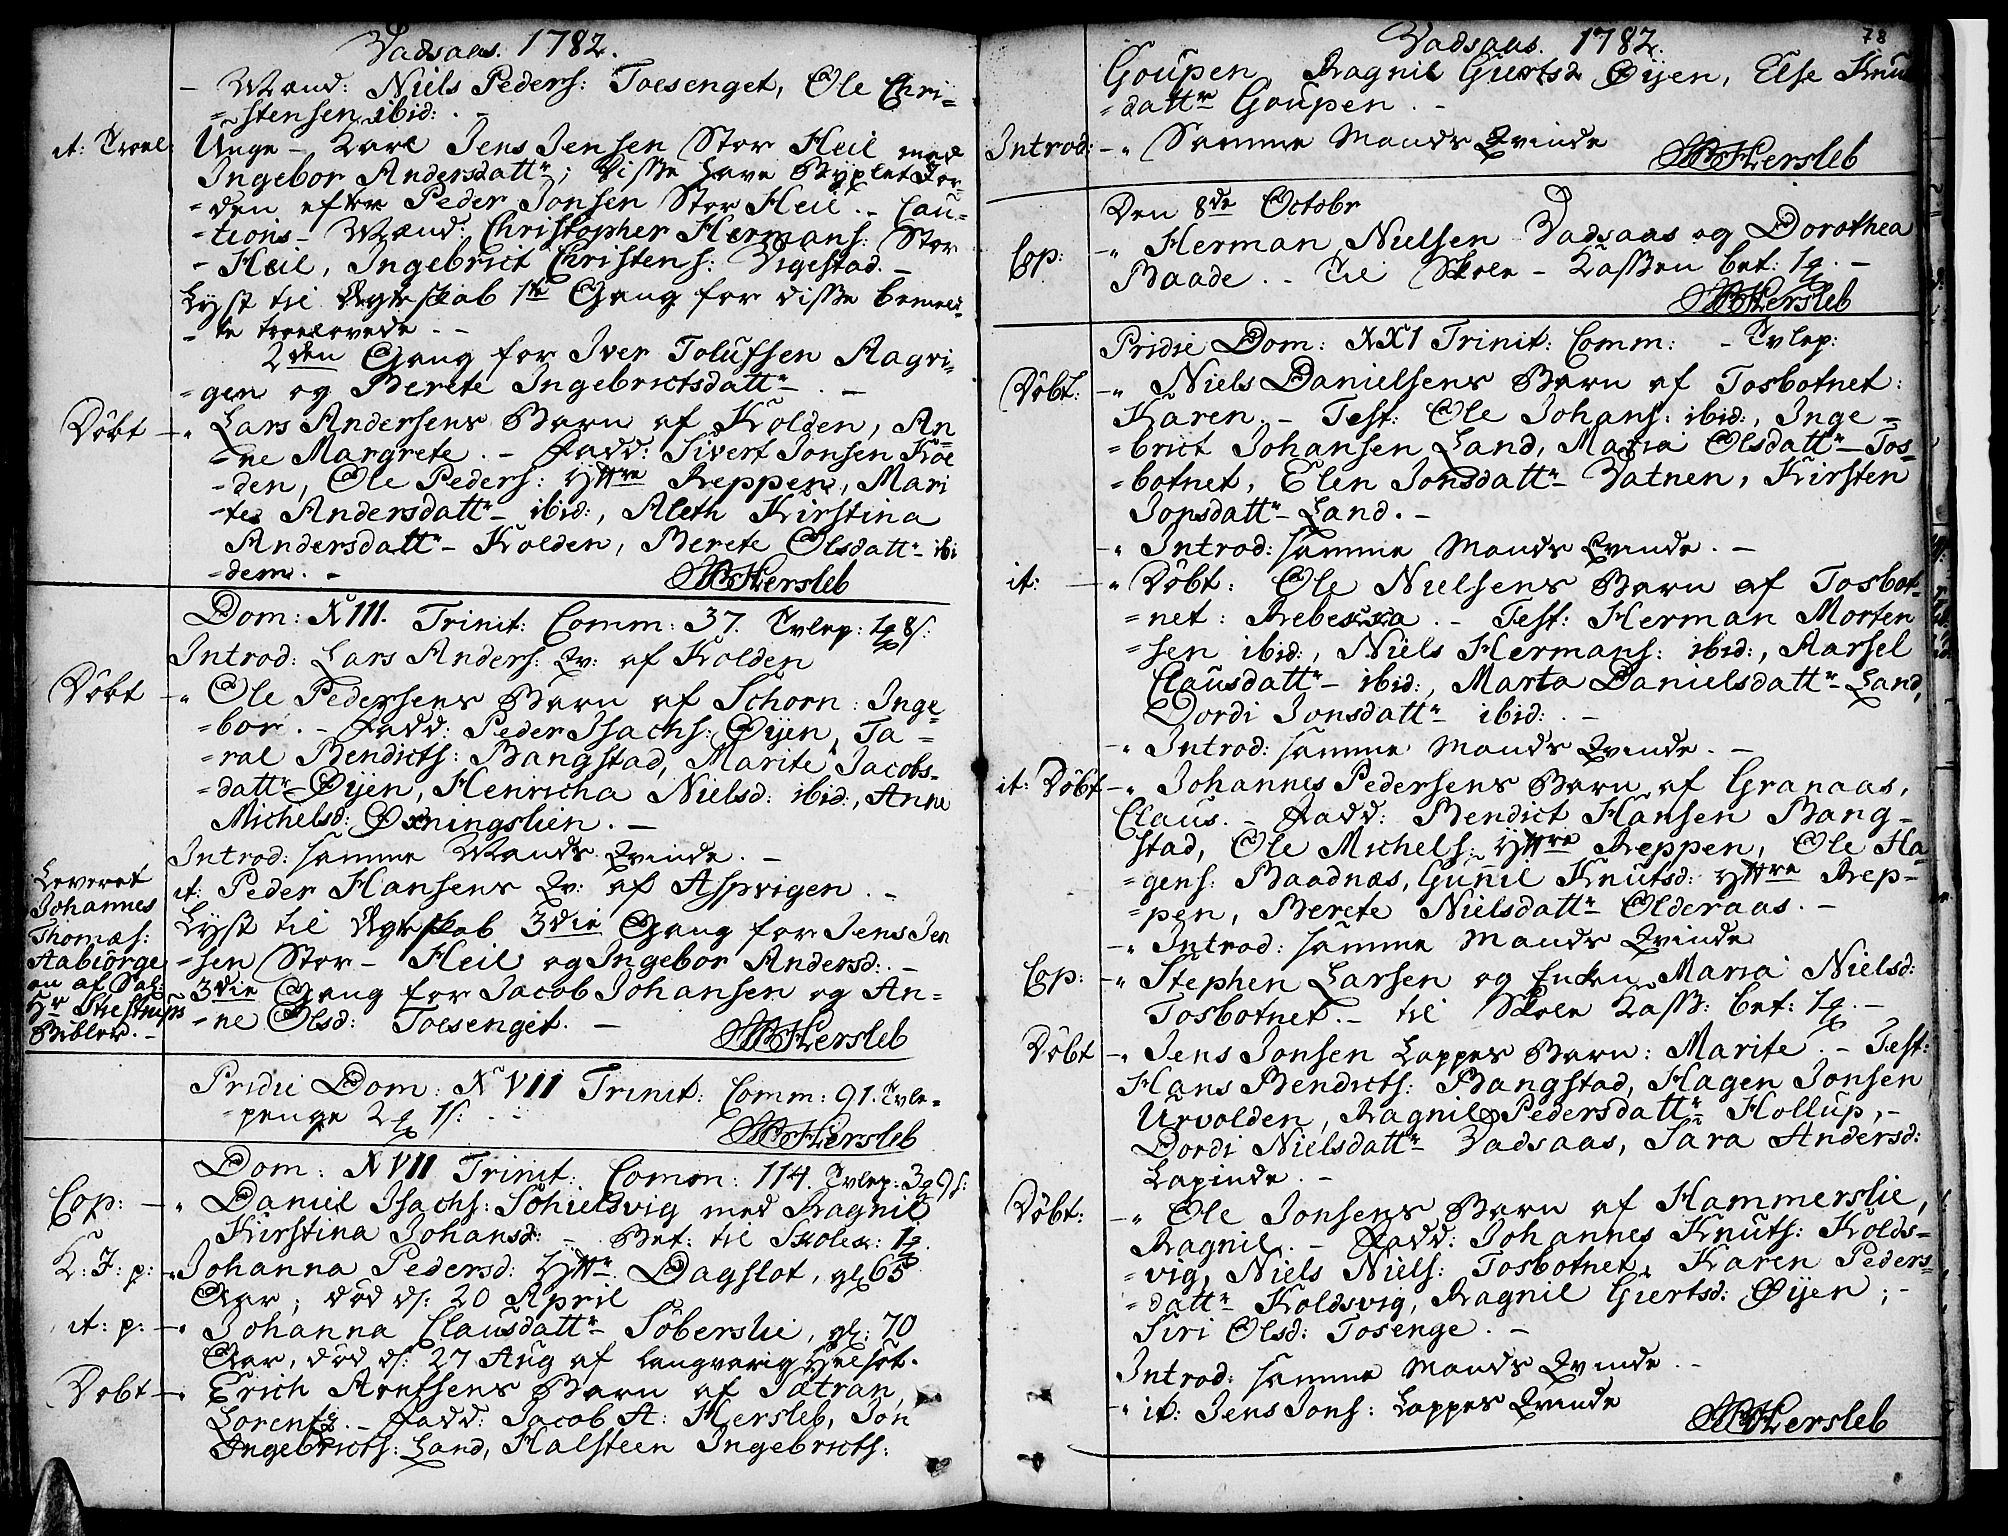 Vadsaas. 1782.
- Mænd: Niels Peders: Toesenget, Ole Chri=
=stensen ibid: . -
it: Troel: Unge - Karl Jens Jensen Stor Heil med
Ingebor Andersdattr; disse have Byxlet Jor=
=den efter Peder Jonsen Stor Heil. - Cau=
=tions- Mænd: Christopher Hermans: Stor
- Heil, Ingebrict Christens: Vigestad. -
Lyst til Ægteskab 1te Gang for disse bemeld=
- te troelovede. - -
2den Gang for Iver Tolufsen Aagvi=
=gen og Berete Ingebrictsdattr . -
Döbt -" Lars Andersens Barn af Kolden, An=
=ne Margrete. - Fadd: Sivert Jonsen Kol
-den, Ole Peders: Yttre Reppen, Mari
-te Andersdattr ibid:, Aleth Kirstina
Andersdattr- Kolden, Berete Olsdattr- ibi
=dem. - Hersleb
Dom: XIII. Trinit: Comm: 37. Tvlep: 1 8s:
Introd: Lars Anders: Qv: af Kolden
Döbt -" Ole Pedersens Barn af Schorn: Inge=
=bor. - Fadd: Peder Isachs: Öijen, Ta=
=ral Bendicts: Bangstad, Marite Jacobs=
=dattr Öijen, Henricha Nielsd: ibid:, Anne
Michelsd: Öxningslien. -
Introd: samme Mands Qvinde. -
it: Peder Hansens Qv: af Aspvigen. -
Leveret
Johannes
Thomæs:
Aabiörge
en af Sal:
Hr Stestrups
Bibler. -
Lyst til Ægteskab 3die Gang for Jens Jen
=sen Stor- Heil og Ingebor Andersd: . -
3die Gang for Jacob Johansen og An=
=ne Olsd: Toesenget. - Hersleb
Pridie Dom: XVII Trinit: Comm: 91. Tvle=
=penge 2 1s: . -
Hersleb
Dom: XVII Trinit: Comm: 114. Tvlep: 3 9s:
Cop: -" Daniel Isachs: Söhielsvig med Ragnil
Kirstina Johansd: - Bet: til Skolen: 1
K: J: p: -" Johanna Pedersd: Yttr Dagslot, gl: 65
Aar; död d: 20 April
it: p: -" Johanna Clausdattr- Söberslie, gl: 70
Aar, död d: 27 Aug af langvarig Helsot.
Döbt -" Erich Arntsens Barn af Sætran,
Lorents. - Fadd: Jacob A: Hersleb, Jon
Ingebricts: Land, Halsteen Ingebricts:
78
Vadsaas. 1782.
Goupen, Ragnil Giertsd Öijen, Else Knuts
=dattr Goupen. -
Introd: -" Samme Mands Qvinde
Hersleb
Den 8de Octobr
Cop: -" Herman Nielsen Vadsaas og Dorothea
Baade. - Til Skole - Kassen bet: 1 -
Hersleb
Pridie Dom: XXI Trinit: Comm: - Tvlep:
Döbt: -" Niels Danielsens Barn af Tosbotnet:
Karen. - Test: Ole Johans: ibid:, Inge=
=brict Johansen Land, Maria Olsdattr- Tos=
=botnet, Elen Jonsdattr- Vatnen, Kirsten
Jonsdattr- Land. -
-" Introd: samme Mands Qvinde. -
it: -" Döbt: Ole Nielsens Barn af Tosbot=
=net: Rebecka. - Test: Herman Morten
=sen ibid:, Niels Hermans: ibid:, Aarsel
Clausdattr- ibid:, Marta Danielsdattr- Land,
Dordi Jonsdattr ibid: . -
-" Introd: samme Mands Qvinde. -
it: Döbt -" Johannes Pedersens Barn af Granaas,
Claus. - Fadd: Bendict Hansen Bang=
stad, Ole Michels: Yttre Reppen, Ole Ha=
=gens: Baadnæs, Gunil Knutsd: Yttre Rep=
=pen, Berete Nielsdattr Olderaas. -
-" Introd: samme Mands Qvinde
Cop: -" Stephen Larsen og Enken Maria Nielsd:
Tosbotnet. - til Skole Kass: bet: 1 -
Döbt -" Jens Jonsen Lappes Barn: Marite. - Test:
Hans Bendicts: Bangstad, Hagen Jonsen
Urvolden, Ragnil Pedersdattr- Hollup, -
Dordi Nielsdattr Vadsaas, Sara Andersd:
Lapinde. -
Döbt: -" Ole Jonsens Barn af Hammerslie,
Ragnil. - Fadd: Johannes Knuts: Kolds=
=vig, Niels Niels: Tosbotnet, Karen Peders=
=dattr Koldsvig, Ragnil Giertsd: Öijen; -
Siri Olsd: Tosenge. -
Introd: samme Mands Qvinde. -
-" it: Jens Jons: Lappes Qvinde
Hersleb